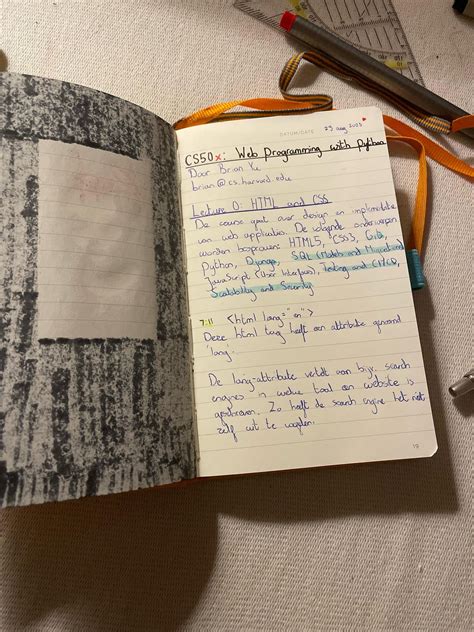 DATUM/DATE
29 aug 2023
CS50x: Web Programming with Python
Door Brian Yu
brian@cs.harvard.edu
Lecture 0: HTML and CSS
De course gaat over design en implementatie
van web applicaties. De volgende onderwerpen
worden besproken: HTML5, CSS3, Git,
Python, Django, SQL (Models and Migrations),
JavaScript (User Interfaces), Testing and CI/CD,
Scalability and Security
7:11 <html lang="en">
Deze html tag heeft een attribute genaamd
'lang'.
De lang-attribute vertelt aan bijv. search
engines in welke taal een website is
geschreven. Zo hoeft de search engine het niet
zelf uit te vogelen.